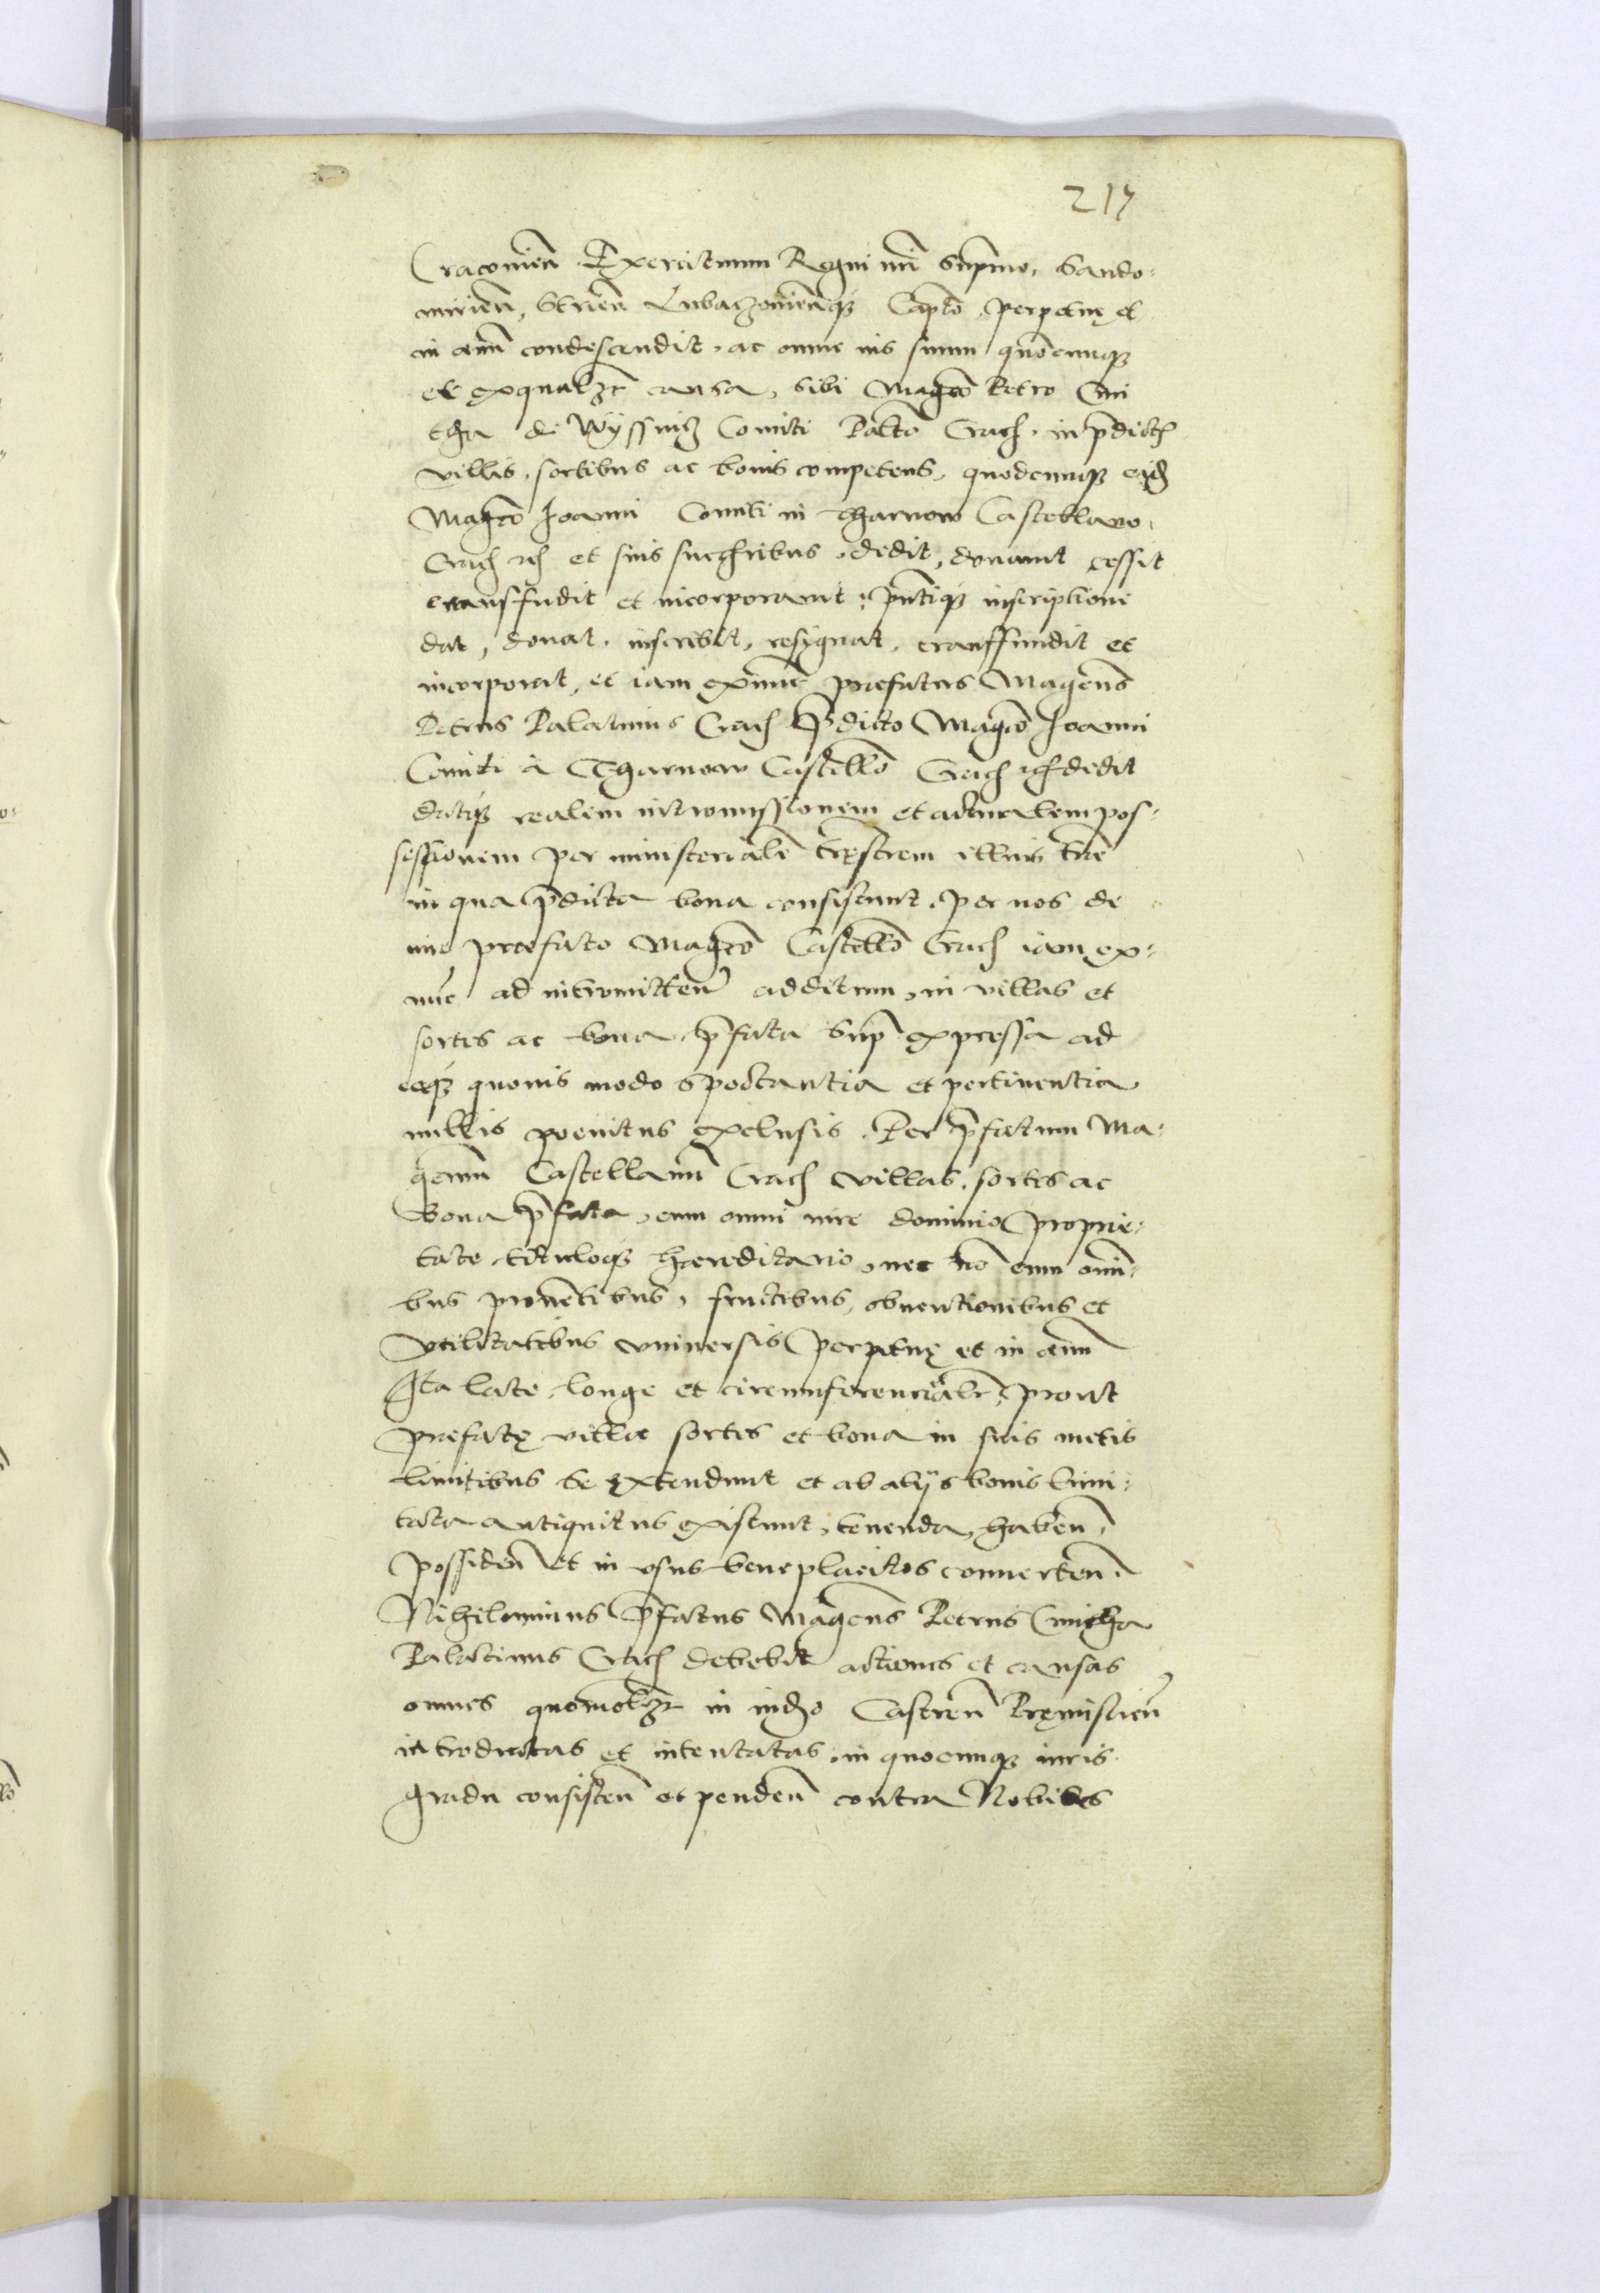 217
Cracovien̄ Exercituum Regni nr̄i Supmo, Sando¬
mirien̄, Strien̄ Lubaczovien̄qꝫ Capto perpetuę et
in aeuū condescendit, ac omne ius suum quodcunqꝫ
et ex qualꝫt causa, sibi Magco Petro Cmi
tha de Wyssnicz Comiti Palto Crach. in pdictis
villis, sortibus ac bonis competens, quodcunqꝫ eidē
Magco Joanni Comiti in Tharnow Castellano
Crach etc et suis succribus dedit, donauit cessit
transfudit et incorporauit, pntiqꝫ inscriptione
dat, donat, inscribit, resignat, transfundit et
incorporat, et iam exnunc praefatus Magcus
Petrus Palatinus Crach pdicto Magco Joanni
Comiti a Tharnow Castello Crach etc dedit
datqꝫ realem intromissionem et actualem pos¬
sessionem per ministerialē tręstrem illius trę
in qua pdicta bona consistunt, per nos de
iure praefato Magco Castello Crach iam ex¬
nūc ad intromitten̄ additum, in villas et
sortes ac bona, pfata sup expressa ad
eaqꝫ quouis modo spectantia et pertinentia
nullis poenitus exclusis. Per pfatum Ma¬
gcum Castellanū Crach villas, sortes ac
bona pfata, cum omni iure dominio proprie¬
tate, tituloqꝫ haereditario, nec nō cum omī¬
bus prouētibus, fructibus, obuentionibus et
vtilitatibus vniuersis perpetuę et in aeuū
Ita late, longe et circumferencialr, prout
praefatę villae sortes et bona in suis metis
limitibus se extendunt et ab alijs bonis limi¬
tata antiquitus existunt, tenenda, haben̄,
possiden̄ et in vsus beneplacitos conuerten̄.
Nihilominus pfatus Magcus Petrus Cmitha
Palatinus Crach debebit actiones et causas
omnes quomolꝫt in iudo Castren̄ Pręmislien̄
introductas et intentatas, in quocunqꝫ iuris
gradu consisten̄ et penden̄ contra Nobiles